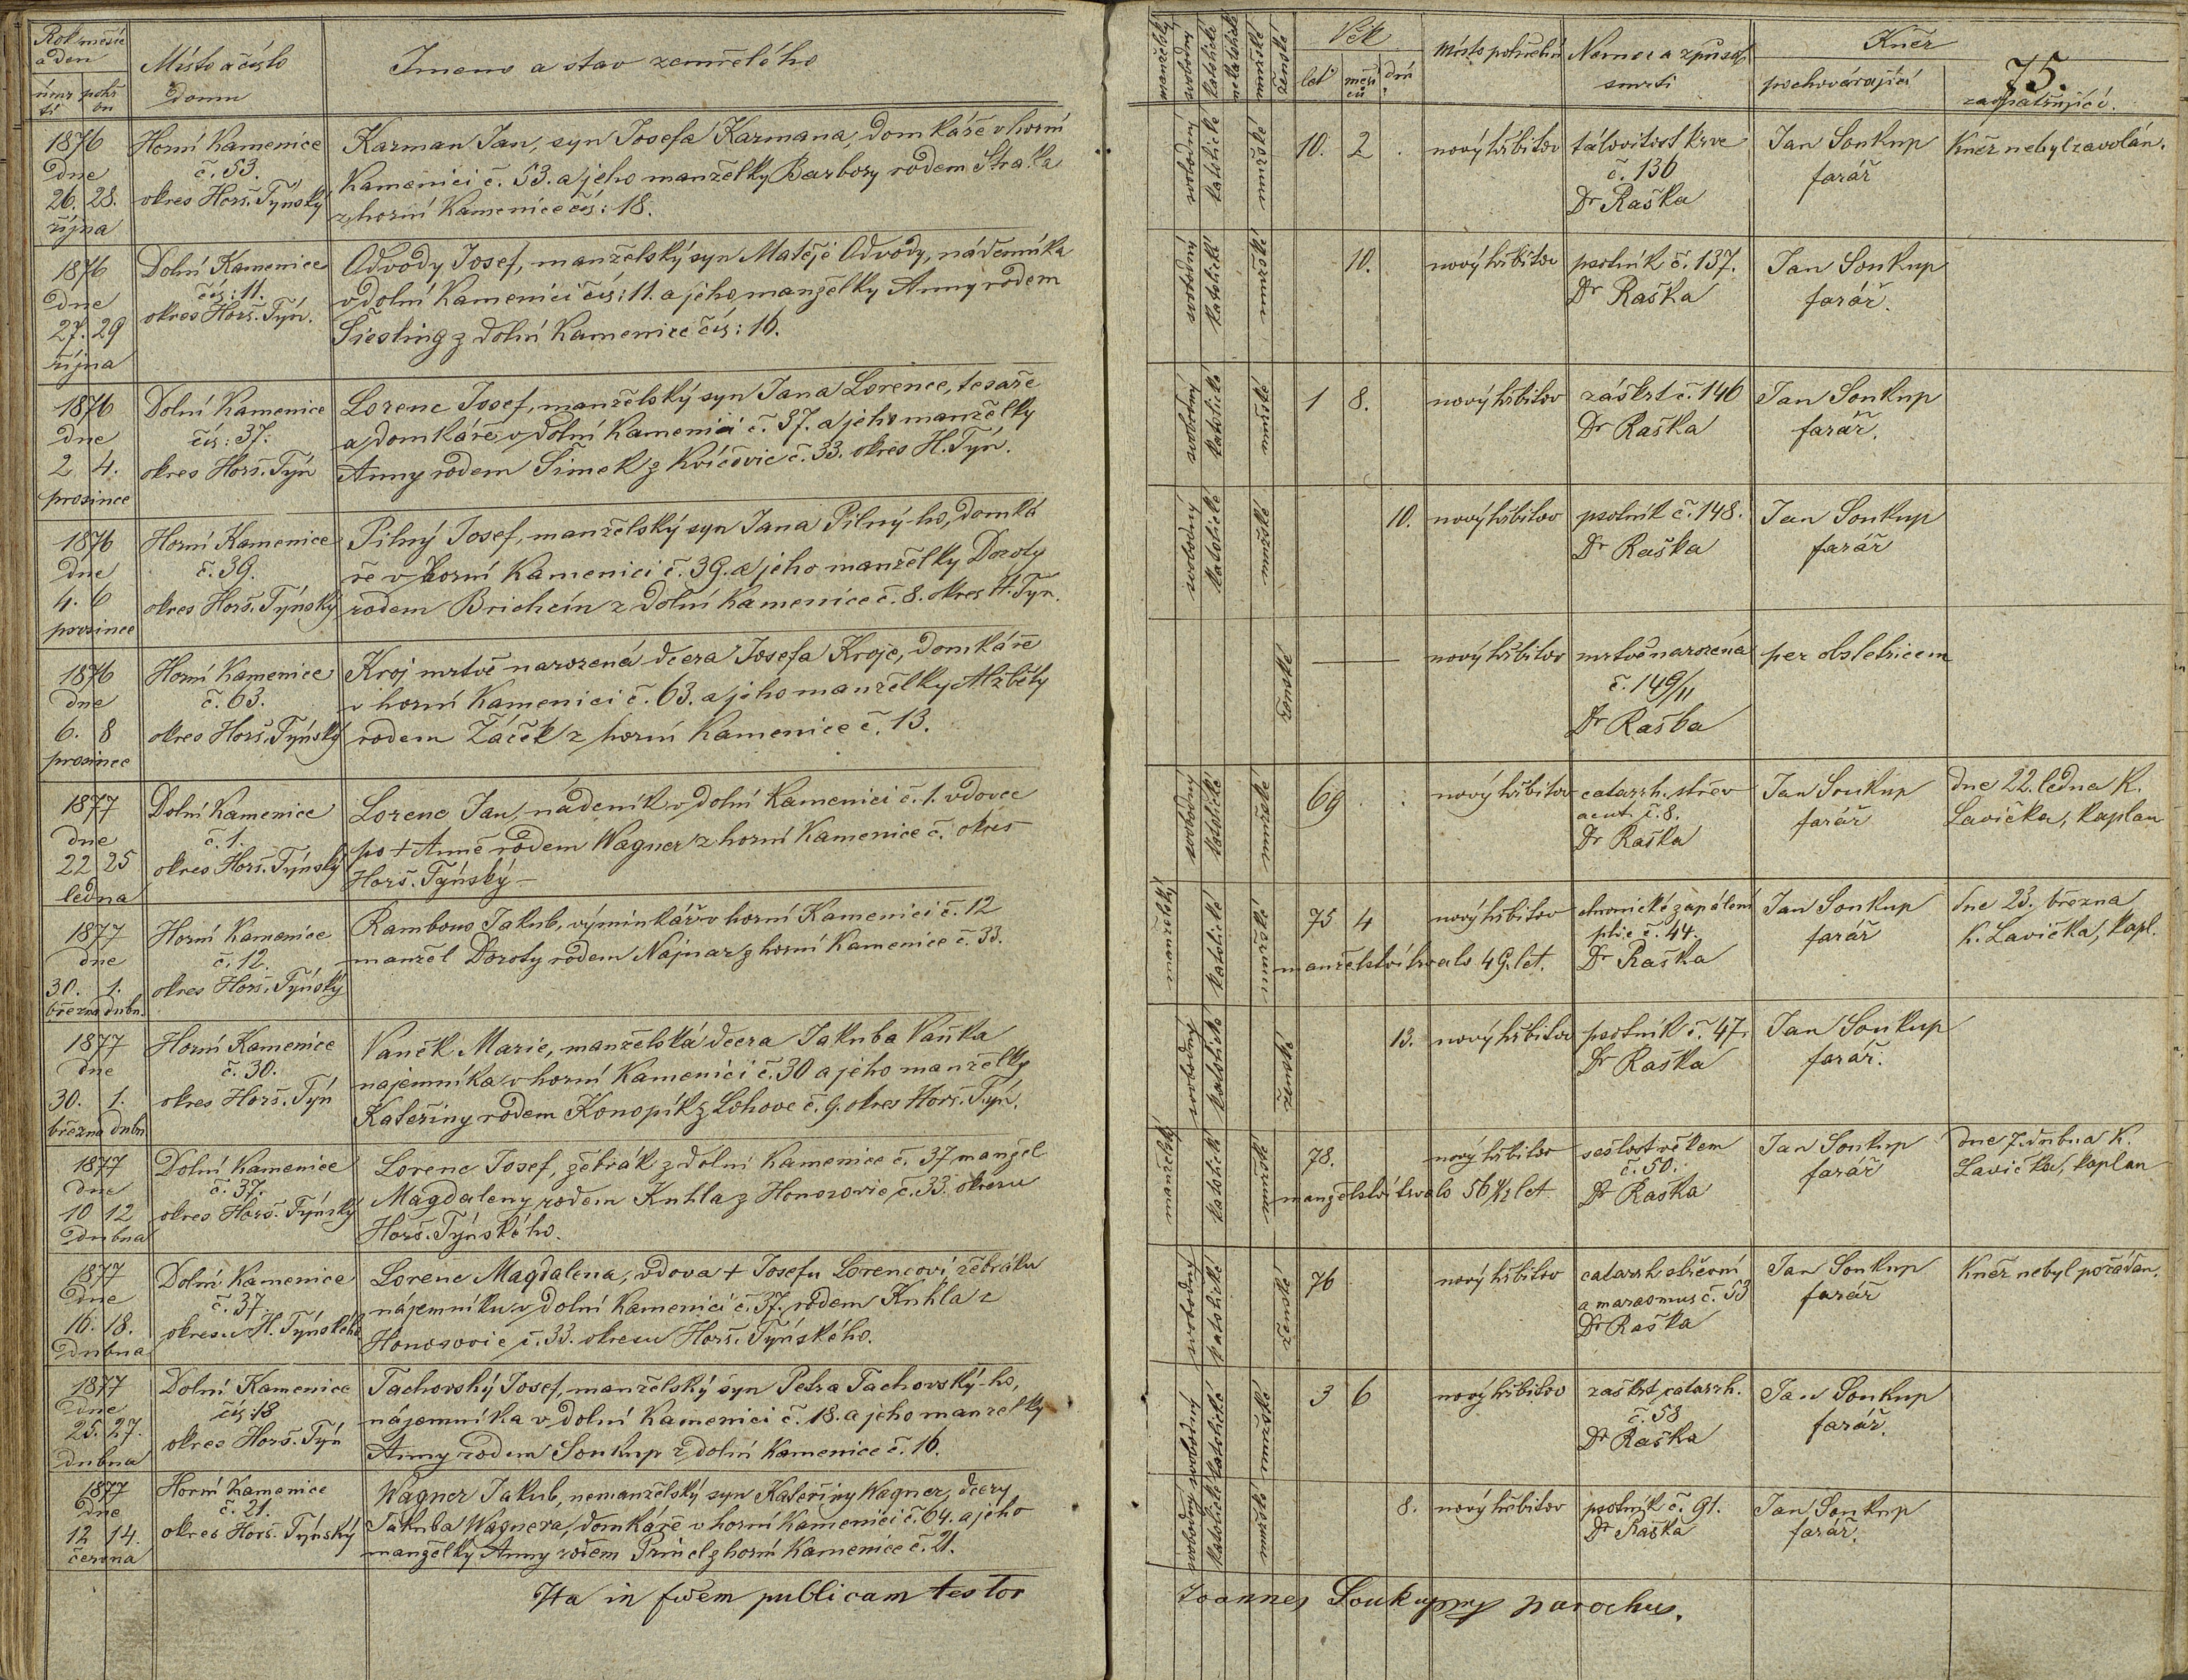 Rok měsíc
a den
úmr
tí
pohř
bu
Místo a číslo
domu
Jmeno a stav zemřelého
1876
dne
26. 28.
října
Horní Kamenice
č. 53.
okres Horš. Týnský
Karman Jan, syn Josefa Karmana, domkáře v horní
Kamenici č. 53. a jeho manželky Barbory rodem Straka
z horní Kamenice čís: 18.
1876
dne
27. 29
října
Dolní Kamenice
čís: 11.
okres Horš. Týn.
Odvody Josef, manželský syn Matěje Odvody, nádeníka
v dolní Kamenici čís: 11. a jeho manželky Anny rodem
Siesling z dolní Kamenice čís: 16.
1876
dne
2 4.
prosince
Dolní Kamenice
čís: 37.
okres Horš. Týn
Lorenc Josef, manželský syn Jana Lorence, tesaře
a domkáře v dolní Kamenici č. 37. a jeho manželky
Anny rodem Šimek z Kvíčovic č. 33. okres H. Týn.
1876
dne
4. 6
prosince
Horní Kamenice
č. 39.
okres Horš. Týnský
Pilný Josef, manželský syn Jana Pilný-ho, domká
ře v horní Kamenici č. 39. a jeho manželky Doroty
rodem Brichcín z dolní Kamenice č. 8. okres H. Týn.
1876
dne
6. 8
prosince
Horní Kamenice
č. 63.
okres Horš. Týnský
Kroj mrtvě narozená dcera Josefa Kroje, domkáře
v horní Kamenici č. 63. a jeho manželky Alžběty
rodem Žáček z horní Kamenice č. 13.
1877
dne
22 25
ledna
Dolní Kamenice
č. 1.
okres Horš. Týnský
Lorenc Jan, nádeník v dolní Kamenici č. 1. vdovec
po + Anně rodem Wagner z horní Kamenice č. okres
Horš. Týnský –
1877
dne
30. 1.
března dubn.
Horní Kamenice
č. 12.
okres Horš. Týnský
Rambous Jakub, výminkář v horní Kamenici č. 12
manžel Doroty rodem Najnar z horní Kamenice č. 33.
1877
dne
30. 1.
března dubn
Horní Kamenice
č. 30.
okres Horš. Týn
Vaněk Marie, manželská dcera Jakuba Vaňka
najemníka v horní Kamenici č. 30 a jeho manželky
Kateřiny rodem Konopík z Lohovc č. 9. okres Horš. Týn.
1877
dne
10 12
dubna
Dolní Kamenice
č. 37.
okres Horš. Týnský
Lorenc Josef, žebrák z dolní Kamenice č. 37 manžel
Magdaleny rodem Kuhla z Honosovic č. 33. okresu
Horš. Týnského.
1877
dne
16. 18.
dubna
Dolní Kamenice
č. 37.
okresu H. Týnského
Lorenc Magdalena, vdova + Josefu Lorencovi, žebráku
nájemníku v dolní Kamenici č. 37. rodem Kuhla z
Honosovic č. 33. okresu Horš. Týnského.
1877
dne
25. 27.
dubna
Dolní Kamenice
čís: 18
okres Horš. Týn
Tachovský Josef, manželský syn Petra Tachovský-ho,
nájemníka v dolní Kamenici č. 18. a jeho manželky
Anny rodem Soukup z dolní Kamenice č. 16.
1877
dne
12 14.
června
Horní Kamenice
č. 21.
okres Horš. Týnský
Wagner Jakub, nemanželský syn Kateřiny Wagner, dcery
Jakuba Wagnera, domkáře v horní Kamenici č. 64. a jeho
manželky Anny rodem Princl z horní Kamenice č. 21.
Ita in fidem publicam testor
manželský
svobodný
katolické
nekatolické
mužské
ženské
Věk
let
měsí
ců
dnů
Místo pohřební
Nemoc a způsob
smrti
Kněz
pochovávající
75.
zaopatřující.
svobodný katolické mužské
10. 2 .
nový hřbitov
tálovitost krve
č. 136
Dr Raška
Jan Soukup
farář
Kněz nebyl zavolán.
svobodný katolické mužské
10.
nový hřbitov
psotník č. 137.
Dr Raška
Jan Soukup
farář.
svobodný katolické mužské
1 8.
nový hřbitov
záškrt č. 146
Dr Raška
Jan Soukup
farář.
svobodný katolické mužské
10.
nový hřbitov
psotník č. 148.
Dr Raška
Jan Soukup
farář
ženské
nový hřbitov
mrtvě narozená
č. 149/II
Dr Raška
per obstetricem
svobodný katolické mužské
69 . .
nový hřbitov
catarrh. střev
acut. č. 8.
Dr Raška
Jan Soukup
farář
dne 22. ledna K.
Lavička, kaplan
manželský katolické mužské
75 4
nový hřbitov
manželství trvalo 49. let.
chronické zapálení
plic č. 44.
Dr Raška
Jan Soukup
farář
dne 23. března
K. Lavička, kapl.
svobodný katolické ženské
13.
nový hřbitov
psotník č. 47.
Dr Raška
Jan Soukup
farář.
manželský katolické mužské
78.
nový hřbitov
manželství trvalo 56 1/2 let
sešlost věkem
č. 50.
Dr Raška
Jan Soukup
farář
dne 7. dubna K.
Lavička, kaplan
svobodný katolické ženské
76
nový hřbitov
catarrh střevní
a marasmus č. 53
Dr Raška
Jan Soukup
farář
Kněz nebyl požádán.
svobodný katolické mužské
3 6
nový hřbitov
zaškrt catarrh.
č. 58
Dr Raška
Jan Soukup
farář.
svobodný katolické mužské
8.
nový hřbitov
psotník č. 91.
Dr Raška
Jan Soukup
farář.
Joannes Soukup mp parochus.